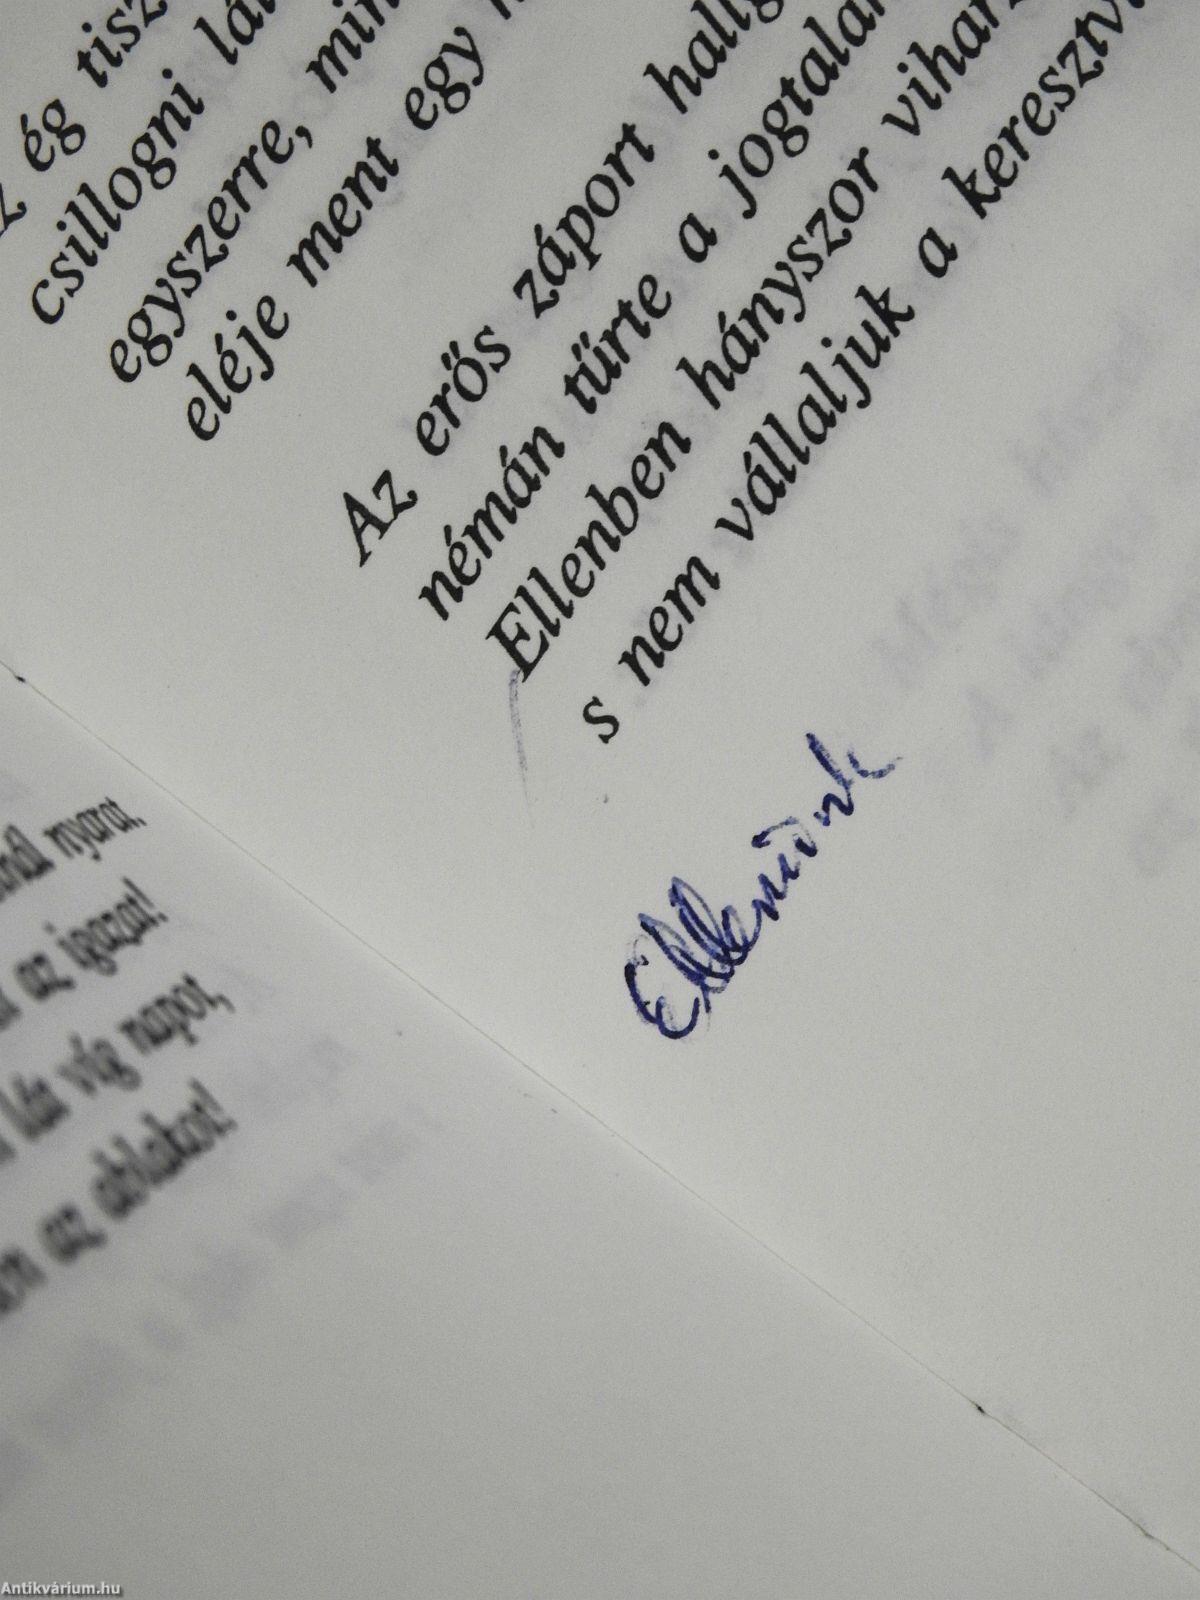 ég tisz
csillogni lá
egyszerre, min
eléje ment egy
Az erős záport hallg
némán tűrte a jogtalan
Ellenben hányszor viharz
s nem vállaljuk a keresztv
Ellenünk
nyarat.
az igazat!
lát víg napot,
az ablakot!
Antikvárium.hu